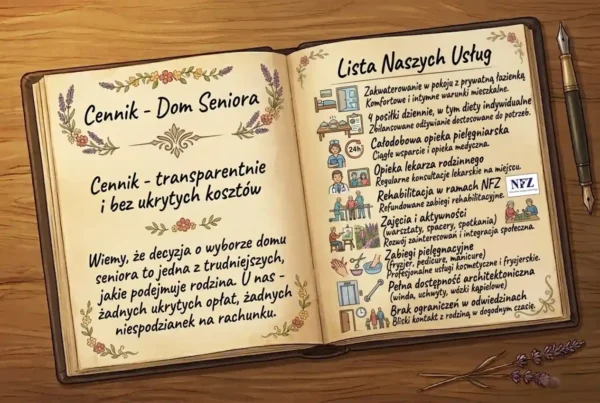 Cennik - Dom Seniora
Cennik - transparentnie
i bez ukrytych kosztów
Wiemy, że decyzja o wyborze domu
seniora to jedna z trudniejszych,
jakie podejmuje rodzina. U nas -
żadnych ukrytych opłat, żadnych
niespodzianek na rachunku.
Lista Naszych Usług
Zakwaterowanie w pokoju z prywatną łazienką
Komfortowe i intymne warunki mieszkalne.
4 posiłki dziennie, w tym diety indywidualne
Zbilansowane odżywianie dostosowane do potrzeb.
24h
Całodobowa opieka pielęgniarska
Ciągłe wsparcie i opieka medyczna.
Opieka lekarza rodzinnego
Regularne konsultacje lekarskie na miejscu.
Rehabilitacja w ramach NFZ
NFZ
Refundowane zabiegi rehabilitacyjne.
Zajęcia i aktywności
(warsztaty, spacery, spotkania)
Rozwój zainteresowań i integracja społeczna.
Zabiegi pielęgnacyjne
(fryzjer, pedicure, manicure)
Profesjonalne usługi kosmetyczne i fryzjerskie.
Pełna dostępność architektoniczna
(winda, uchwyty, wózki kąpielowe)
Brak ograniczeń w odwiedzinach
Bliski kontakt z rodziną w dogodnym czasie.